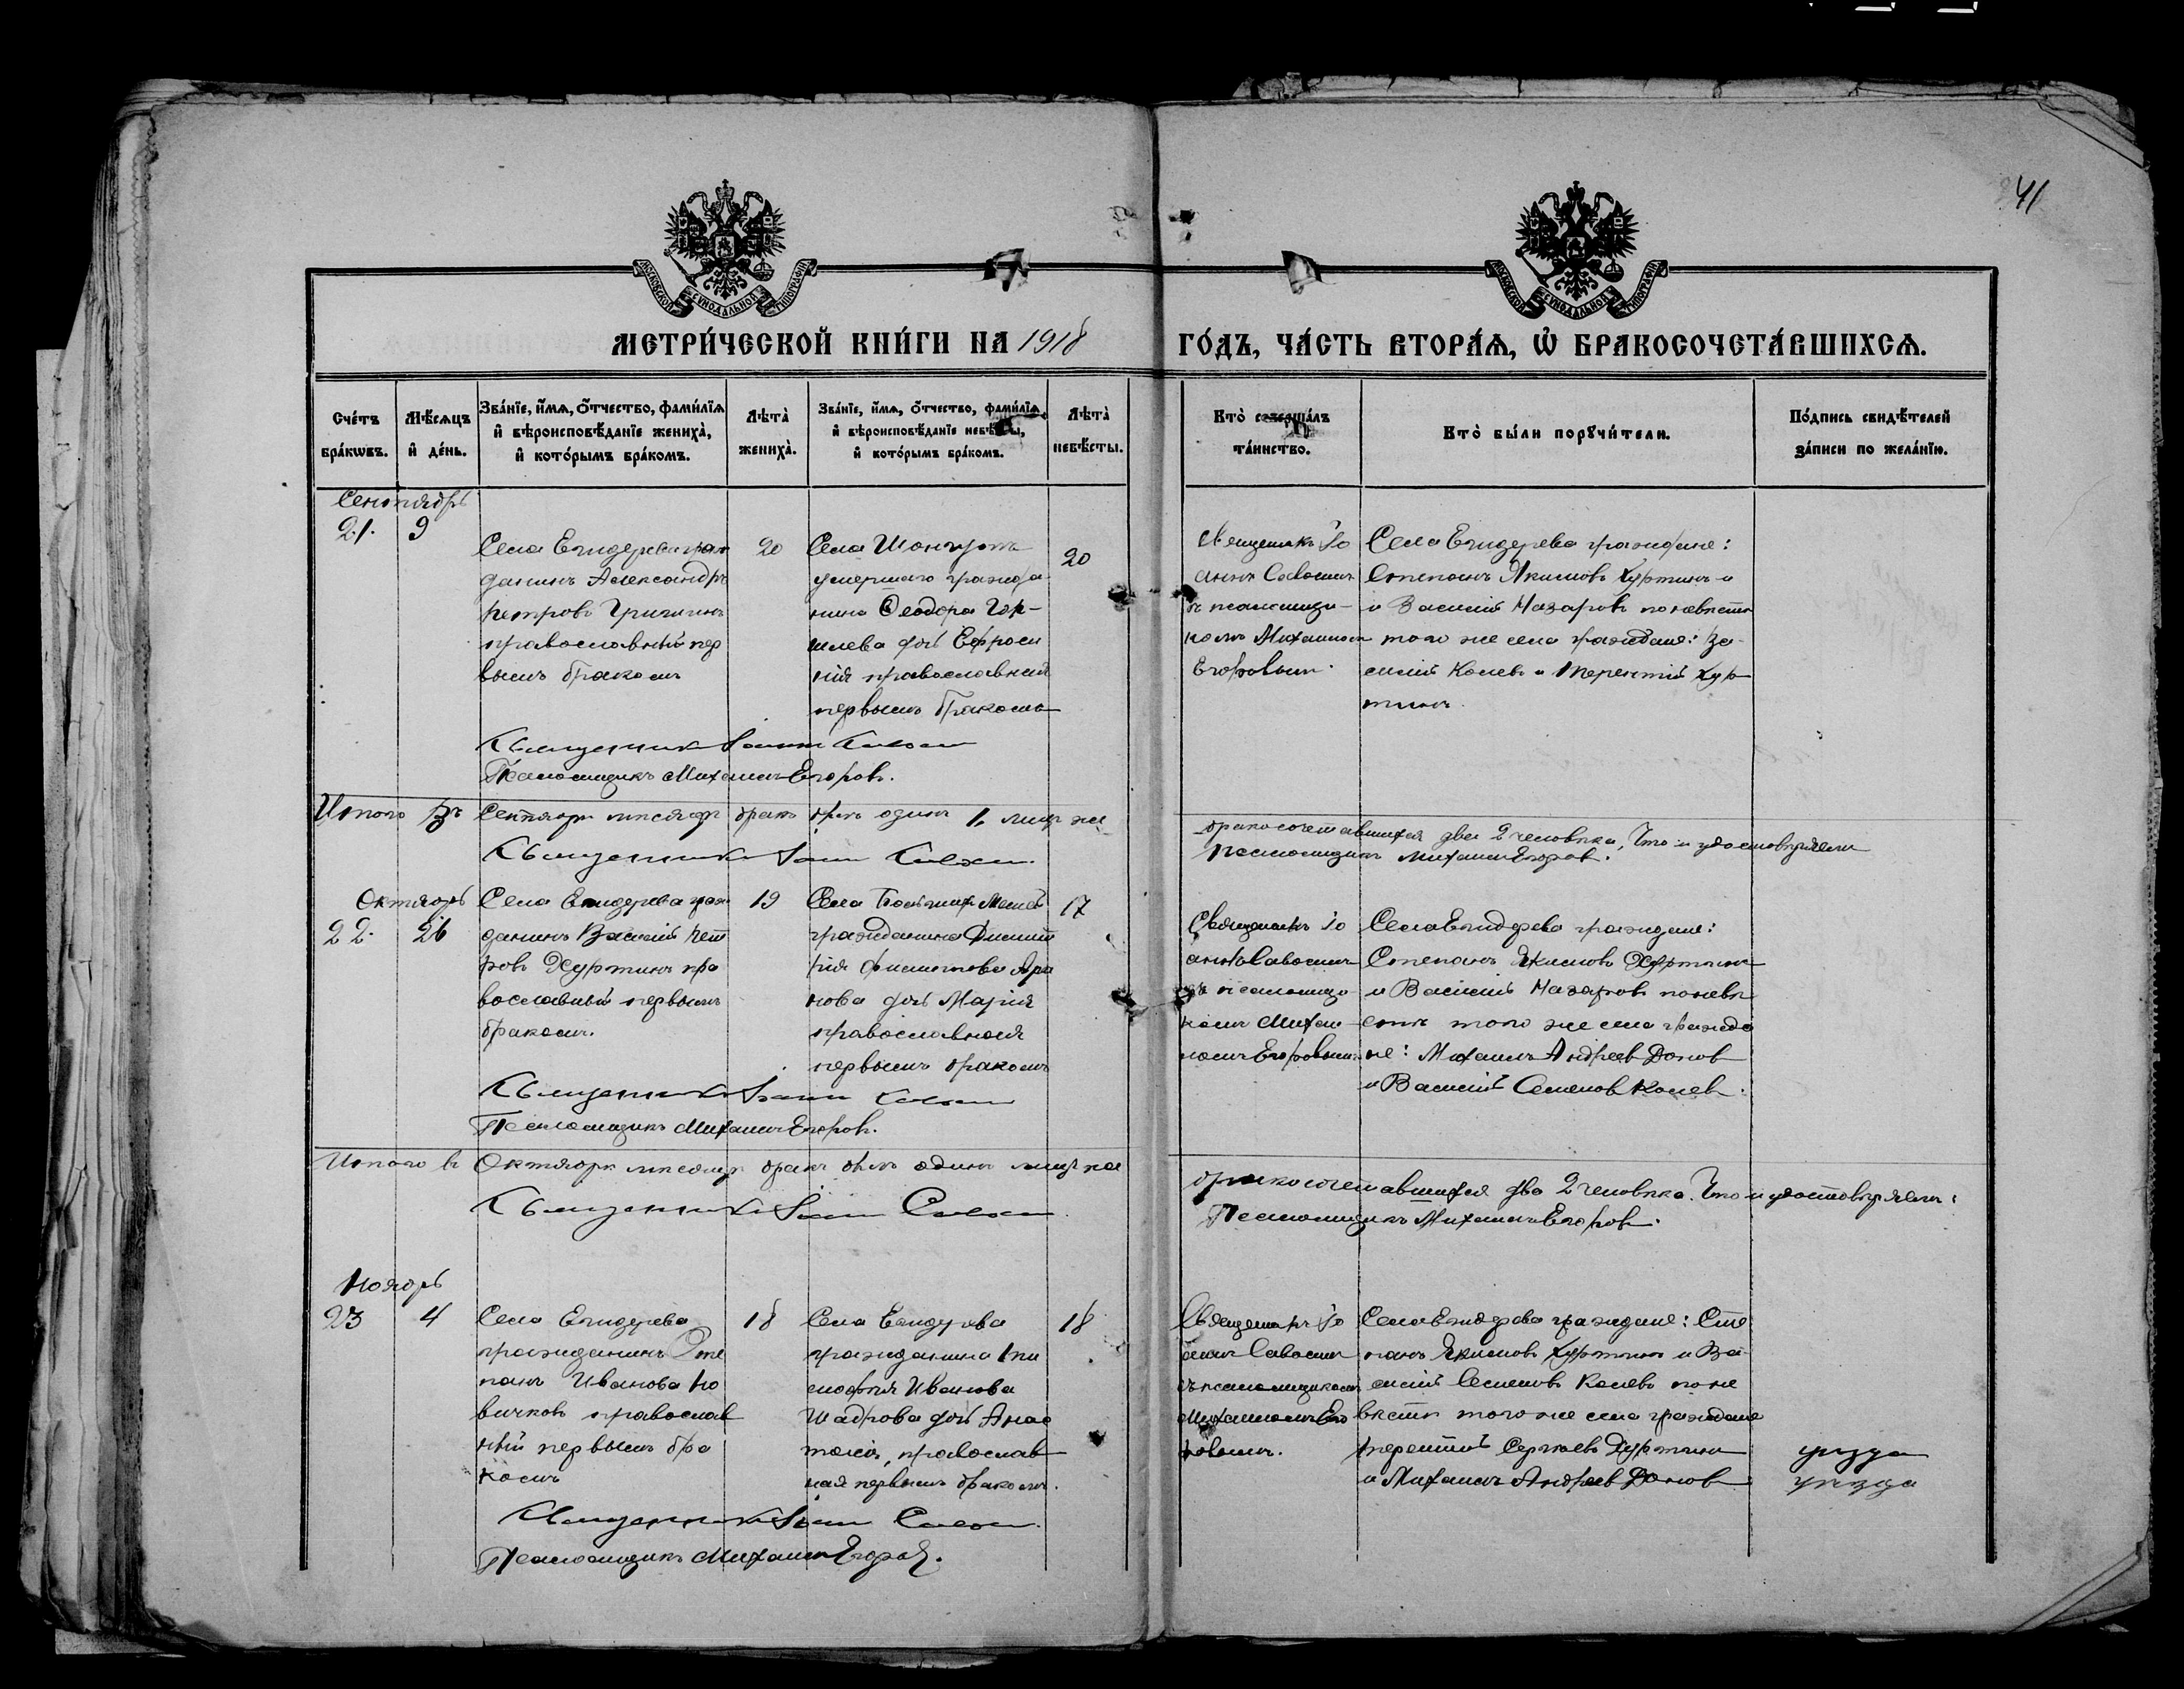 41
МОСКОВСКОЙ СѴНОДАЛЬНОЙ ТИПОГРАФІИ
МОСКОВСКОЙ СѴНОДАЛЬНОЙ ТИПОГРАФІИ
МЕТРИ́ЧЕСКОЙ КНИ́ГИ НА 1918 ГО́ДЪ, ЧА́СТЬ ВТОРА́Ѧ, Ѡ҆ БРАКОСОЧЕТА́ВШИХСѦ.
Сче́тъ бра́кѡвъ.
Мѣ́сѧцъ и҆ де́нь.
Зва́нїе, и҆́мѧ, ѻ҆́тчество, фами́лїѧ и҆ вѣроисповѣ́данїе жениха̀, и҆ кото́рымъ бра́комъ.
Лѣта̀ жениха̀.
Зва́нїе, и҆́мѧ, ѻ҆́тчество, фами́лїѧ и҆ вѣроисповѣ́данїе невѣ́сты, и҆ кото́рымъ бра́комъ.
Лѣта̀ невѣ́сты.
Кто̀ соверша́лъ та́инство.
Кто̀ бы́ли порꙋчи́тели.
По́дпись свидѣ́телей за́писи по жела́нїю.
Сентябрь
21. 9
Села Енидерева граж
данинъ Александръ
Петровъ
православный пер
вымъ бракомъ
20
Села
умершаго гражда
нина Ѳеодора
дочь Ефроси
нія православный
первымъ бракомъ
20
Священникъ Іо
аннъ
съ псаломщи-
комъ Михаиломъ
Егоровымъ.
Села Енидерева граждане:
Степанъ Якимовъ Хуртинъ и
и Василій Назаровъ по невѣсте
того же села граждане: Ва-
силій Колевъ и Терентій Хур
тинъ.
Священникъ Іоаннъ
Псаломщикъ Михаилъ Егоровъ.
Итого въ Сентябрѣ мѣсяцѣ бракъ былъ одинъ 1, лицъ же
бракосочетавшихся два 2 человѣка, Что и удостовѣряемъ
Священникъ Іоаннъ
Псаломщикъ Михаилъ Егоровъ.
Октябрь
22. 26
Села Енидерева граж
данинъ Василій Пет
ровъ Хуртинъ пра
вославный первымъ
бракомъ.
19
Села
гражданина Димит
рія
нова дочь Марія
православная
первымъ бракомъ
17
Священникъ Іо
аннъ
съ псаломщи-
комъ Михаи-
ломъ Егоровымъ
Села Енидерева граждане:
Степанъ Якимовъ Хуртинъ
и Василій Назаровъ по невѣ
сте того же села гражда
не: Михаилъ Андреев Донов
и Василій Семенов Колев.
Священникъ Іоаннъ
Псаломщикъ Михаилъ Егоровъ.
Итого въ Октябрѣ мѣсяцѣ бракъ былъ одинъ лицъ же
бракосочетавшихся два 2 человѣка. Что и удостовѣряемъ:
Священникъ Іоаннъ
Псаломщикъ Михаилъ Егоров.
Ноябрь
23 4
Села Енидерева
гражданинъ Сте
панъ Иванова Но
вичковъ православ
ный первымъ бра
комъ
18
Села Енидерева
гражданина
Иванова
Шадрова дочь Анас
тасія, православ
ная первымъ бракомъ.
18
Священникъ Іо
аннъ
съ псаломщикомъ
Михаиломъ Его
ровымъ.
Села Енидерева граждане: Сте
панъ Якимовъ Хуртинъ и Ва-
силій Семеновъ Колевъ по не
вѣсте того же села граждане
Терентій Сергѣевъ Хуртинъ
и Михаилъ Андреев Донов
уѣзда
уѣзда
Священникъ Іоаннъ
Псаломщикъ Михаилъ Егоров.